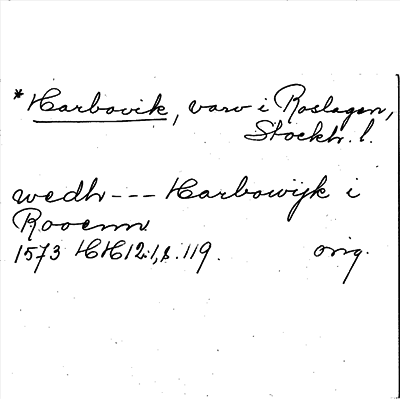 * Harbovik, varv i Roslagen,
Stockh. l.
wedh --- Harbowijk i
Rooenn
1573 HH 12:1, s. 119. orig.